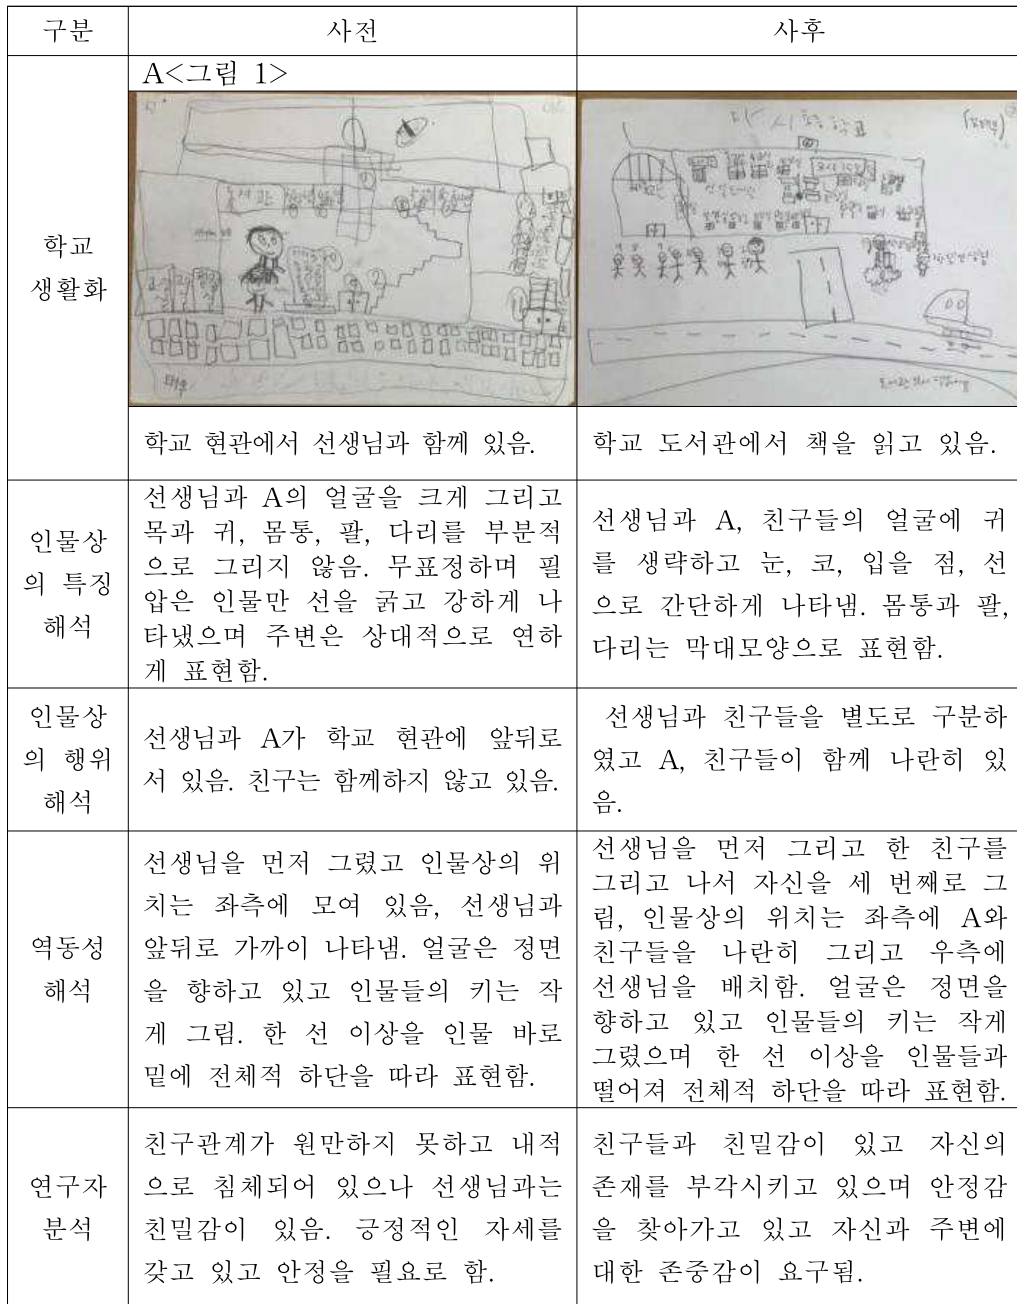 구분
사전
사후
A<그림 1>
학교
생활화
도서관
학교 현관에서 선생님과 함께 있음.
학교 도서관에서 책을 읽고 있음.
인물상
의 특징
해석
선생님과 A의 얼굴을 크게 그리고
목과 귀, 몸통, 팔, 다리를 부분적
으로 그리지 않음. 무표정하며 필
압은 인물만 선을 굵고 강하게 나
타냈으며 주변은 상대적으로 연하
게 표현함.
선생님과 A, 친구들의 얼굴에 귀
를 생략하고 눈, 코, 입을 점, 선
으로 간단하게 나타냄. 몸통과 팔,
다리는 막대모양으로 표현함.
인물상
의 행위
해석
선생님과 A가 학교 현관에 앞뒤로
서 있음. 친구는 함께하지 않고 있음.
선생님과 친구들을 별도로 구분하
였고 A, 친구들이 함께 나란히 있
음.
역동성
해석
선생님을 먼저 그렸고 인물상의 위
치는 좌측에 모여 있음, 선생님과
앞뒤로 가까이 나타냄. 얼굴은 정면
을 향하고 있고 인물들의 키는 작
게 그림. 한 선 이상을 인물 바로
밑에 전체적 하단을 따라 표현함.
선생님을 먼저 그리고 한 친구를
그리고 나서 자신을 세 번째로 그
림, 인물상의 위치는 좌측에 A와
친구들을 나란히 그리고 우측에
선생님을 배치함. 얼굴은 정면을
향하고 있고 인물들의 키는 작게
그렸으며 한 선 이상을 인물들과
떨어져 전체적 하단을 따라 표현함.
연구자
분석
친구관계가 원만하지 못하고 내적
으로 침체되어 있으나 선생님과는
친밀감이 있음. 긍정적인 자세를
갖고 있고 안정을 필요로 함.
친구들과 친밀감이 있고 자신의
존재를 부각시키고 있으며 안정감
을 찾아가고 있고 자신과 주변에
대한 존중감이 요구됨.